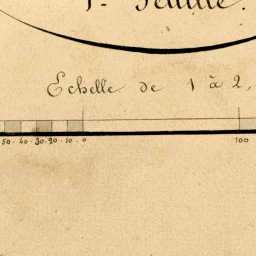 1re Feuille.
Echelle de 1 à 2,
50. 40. 30. 20. 10. 0 100